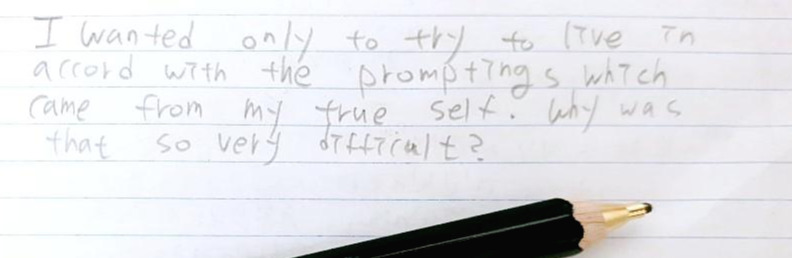 I wanted only to try to live in
accord with the promptings which
came from my true self. Why was
that so very difficult?